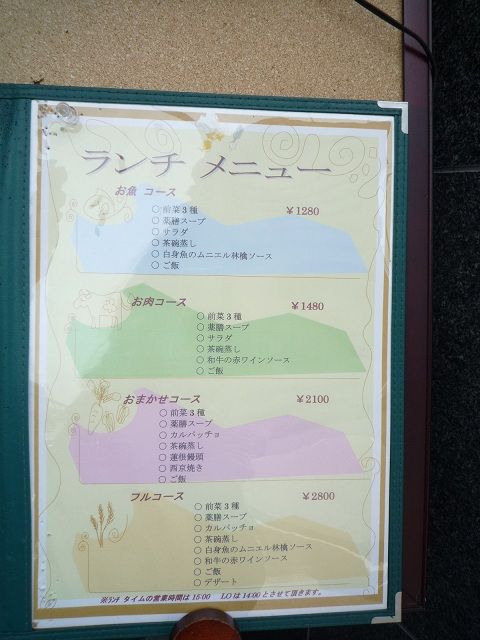 ランチ メニュー
お魚 コース
○ 前菜３種 ￥1280
○ 薬膳スープ
○ サラダ
○ 茶碗蒸し
○ 白身魚のムニエル林檎ソース
○ ご飯
お肉コース
￥1480
○ 前菜３種
○ 薬膳スープ
○ サラダ
○ 茶碗蒸し
○ 和牛の赤ワインソース
○ ご飯
おまかせコース ￥2100
○ 前菜３種
○ 薬膳スープ
○ カルパッチョ
○ 茶碗蒸し
○ 蓮根饅頭
○ 西京焼き
○ ご飯
フルコース ￥2800
○ 前菜３種
○ 薬膳スープ
○ カルパッチョ
○ 茶碗蒸し
○ 白身魚のムニエル林檎ソース
○ 和牛の赤ワインソース
○ ご飯
○ デザート
※ﾗﾝﾁ タイムの営業時間は 15:00 LO は 14:00 とさせて頂きます。